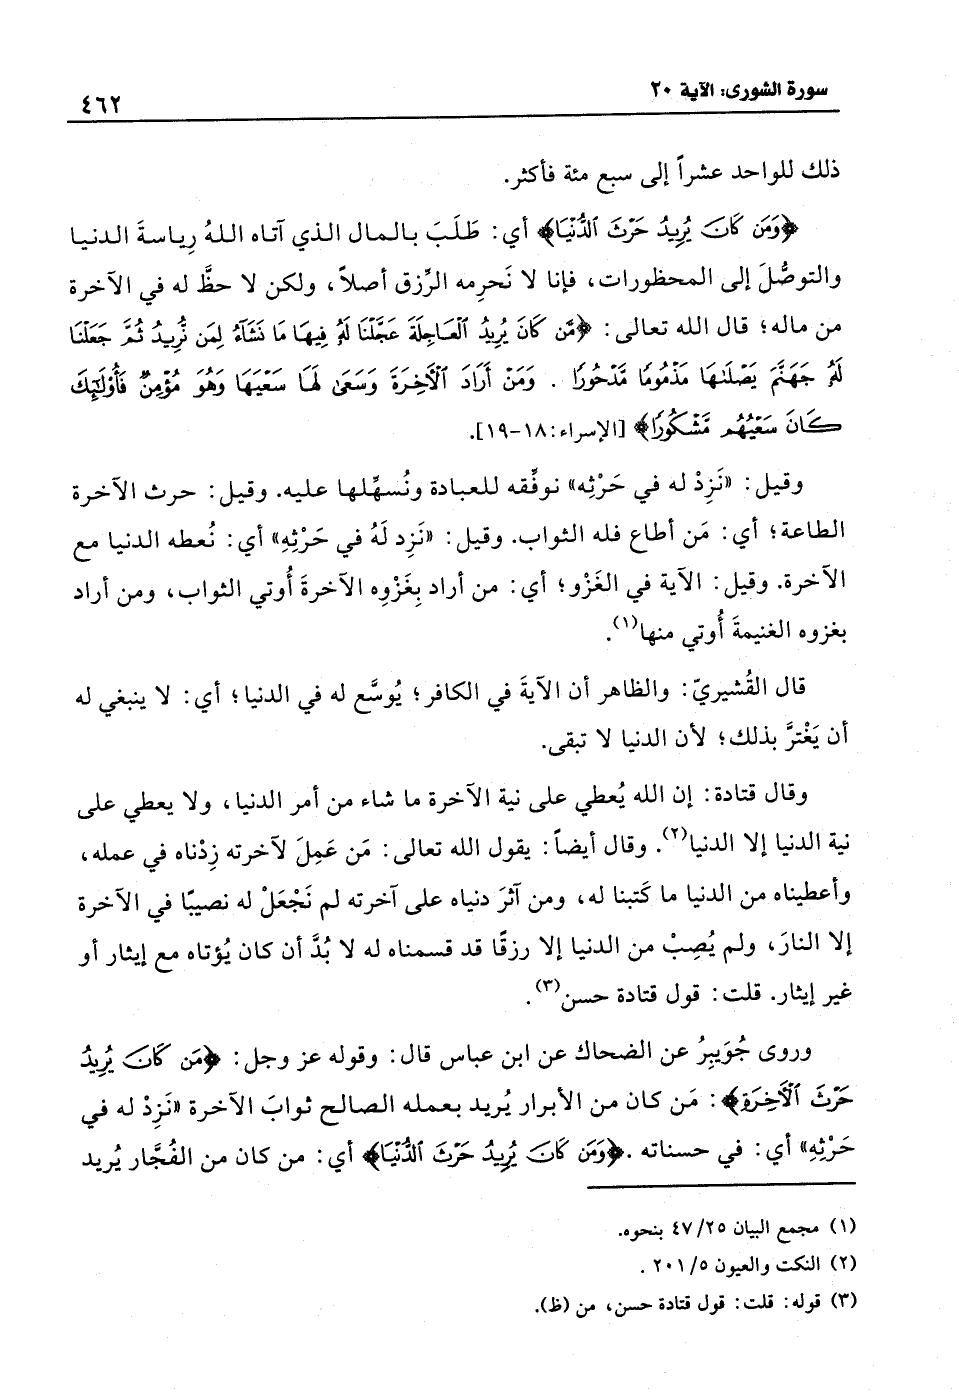 سورة الشورى: الآية ٢٠
٤٦٢
ذلك للواحد عشراً إلى سبع مئة فأكثر.
﴿وَمَن كَانَ يُرِيدُ حَرْثَ ٱلدُّنْيَا﴾ أي: طَلَبَ بالمال الذي آتاه اللهُ رِياسةَ الدنيا
والتوصُّلَ إلى المحظورات، فإنا لا نَحرِمه الرِّزق أصلاً، ولكن لا حظَّ له في الآخرة
من ماله؛ قال الله تعالى: ﴿مَّن كَانَ يُرِيدُ ٱلْعَاجِلَةَ عَجَّلْنَا لَهُۥ فِيهَا مَا نَشَآءُ لِمَن نُّرِيدُ ثُمَّ جَعَلْنَا
لَهُۥ جَهَنَّمَ يَصْلَىٰهَا مَذْمُومًا مَّدْحُورًا . وَمَنْ أَرَادَ ٱلْأَخِرَةَ وَسَعَىٰ لَهَا سَعْيَهَا وَهُوَ مُؤْمِنٌ فَأُو۟لَٰٓئِكَ
كَانَ سَعْيُهُم مَّشْكُورًا﴾ [الإسراء:١٨-١٩].
وقيل: «نَزِدْ له في حَرْثِه» نوفِّقه للعبادة ونُسهِّلها عليه. وقيل: حرث الآخرة
الطاعة؛ أي: مَن أطاع فله الثواب. وقيل: «نَزِد لَهُ في حَرْثِهِ» أي: نُعطه الدنيا مع
الآخرة. وقيل: الآية في الغَزْو؛ أي: من أراد بِغَزْوِه الآخرةَ أُوتي الثواب، ومن أراد
بغزوه الغنيمةَ أُوتي منها(١).
قال القُشيريّ: والظاهر أن الآيةَ في الكافر؛ يُوسَّع له في الدنيا؛ أي: لا ينبغي له
أن يَغْترَّ بذلك؛ لأن الدنيا لا تبقى.
وقال قتادة: إن الله يُعطي على نية الآخرة ما شاء من أمر الدنيا، ولا يعطي على
نية الدنيا إلا الدنيا(٢). وقال أيضاً: يقول الله تعالى: مَن عَمِلَ لآخرته زِدْناه في عمله،
وأعطيناه من الدنيا ما كَتبنا له، ومن آثرَ دنياه على آخرته لم نَجْعَلْ له نصيبًا في الآخرة
إلا النارَ، ولم يُصِبْ من الدنيا إلا رزقًا قد قسمناه له لا بُدَّ أن كان يُؤتاه مع إيثار أو
غير إيثار. قلت: قول قتادة حسن(٣).
وروى جُوَيبِرُ عن الضحاك عن ابن عباس قال: وقوله عز وجل: ﴿مَن كَانَ يُرِيدُ
حَرْثَ ٱلْأَخِرَةِ﴾: مَن كان من الأبرار يُريد بعمله الصالح ثوابَ الآخرة «نَزِدْ له في
حَرْثِهِ» أي: في حسناته .﴿وَمَن كَانَ يُرِيدُ حَرْثَ ٱلدُّنْيَا﴾ أي: من كان من الفُجَّار يُريد
(١) مجمع البيان ٤٧/٢٥ بنحوه.
(٢) النكت والعيون ٢٠١/٥ .
(٣) قوله: قلت: قول قتادة حسن، من (ظ).